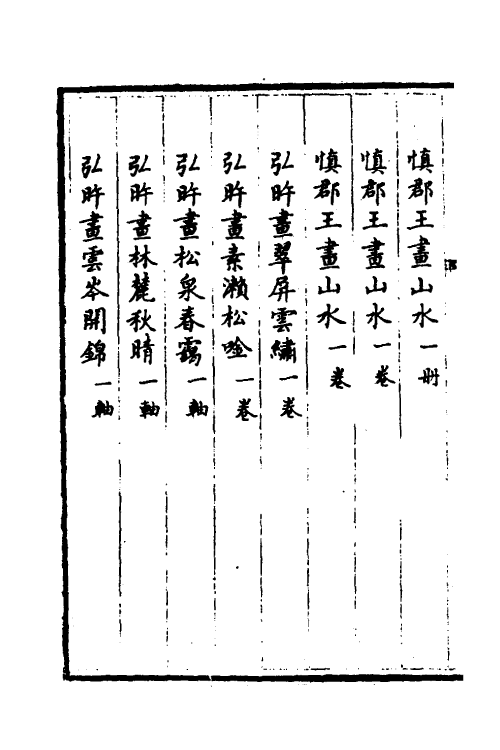 慎郡王畫山水一冊
慎郡王畫山水一卷
慎郡王畫山水一卷
弘旿畫翠屏雲繡一卷
弘旿畫素瀨松唫一卷
弘旿畫松泉春靄一軸
弘旿畫林麓秋晴一軸
弘旿畫雲岑開錦一軸